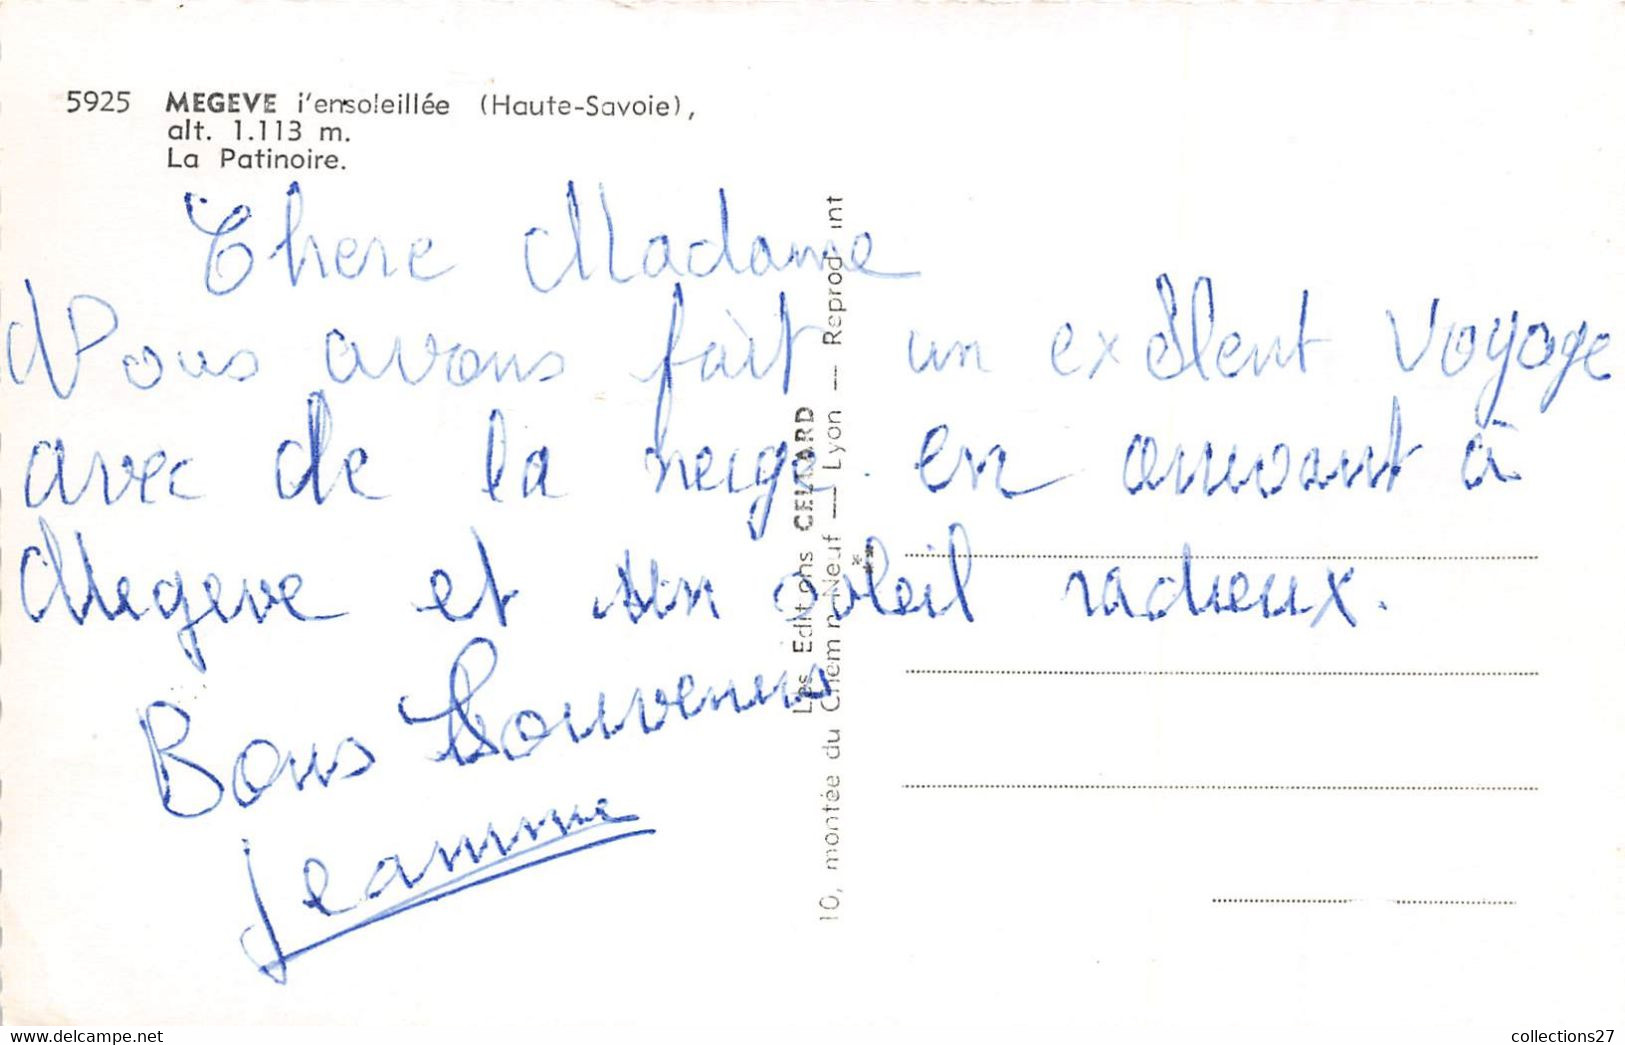 5925 MEGEVE l'ensoleillée (Haute-Savoie),
alt. 1.113 m.
La Patinoire.
Chere Madame
Nous avons fait un exélent voyage
avec de la neige. en arrivant à
Megeve et son soleil radieux.
Bons Souvenirs
Jeannine
Les Editions CELLARD
10, montée du Chemin-Neuf — Lyon — Reprod int
www.delcampe.net
collections27